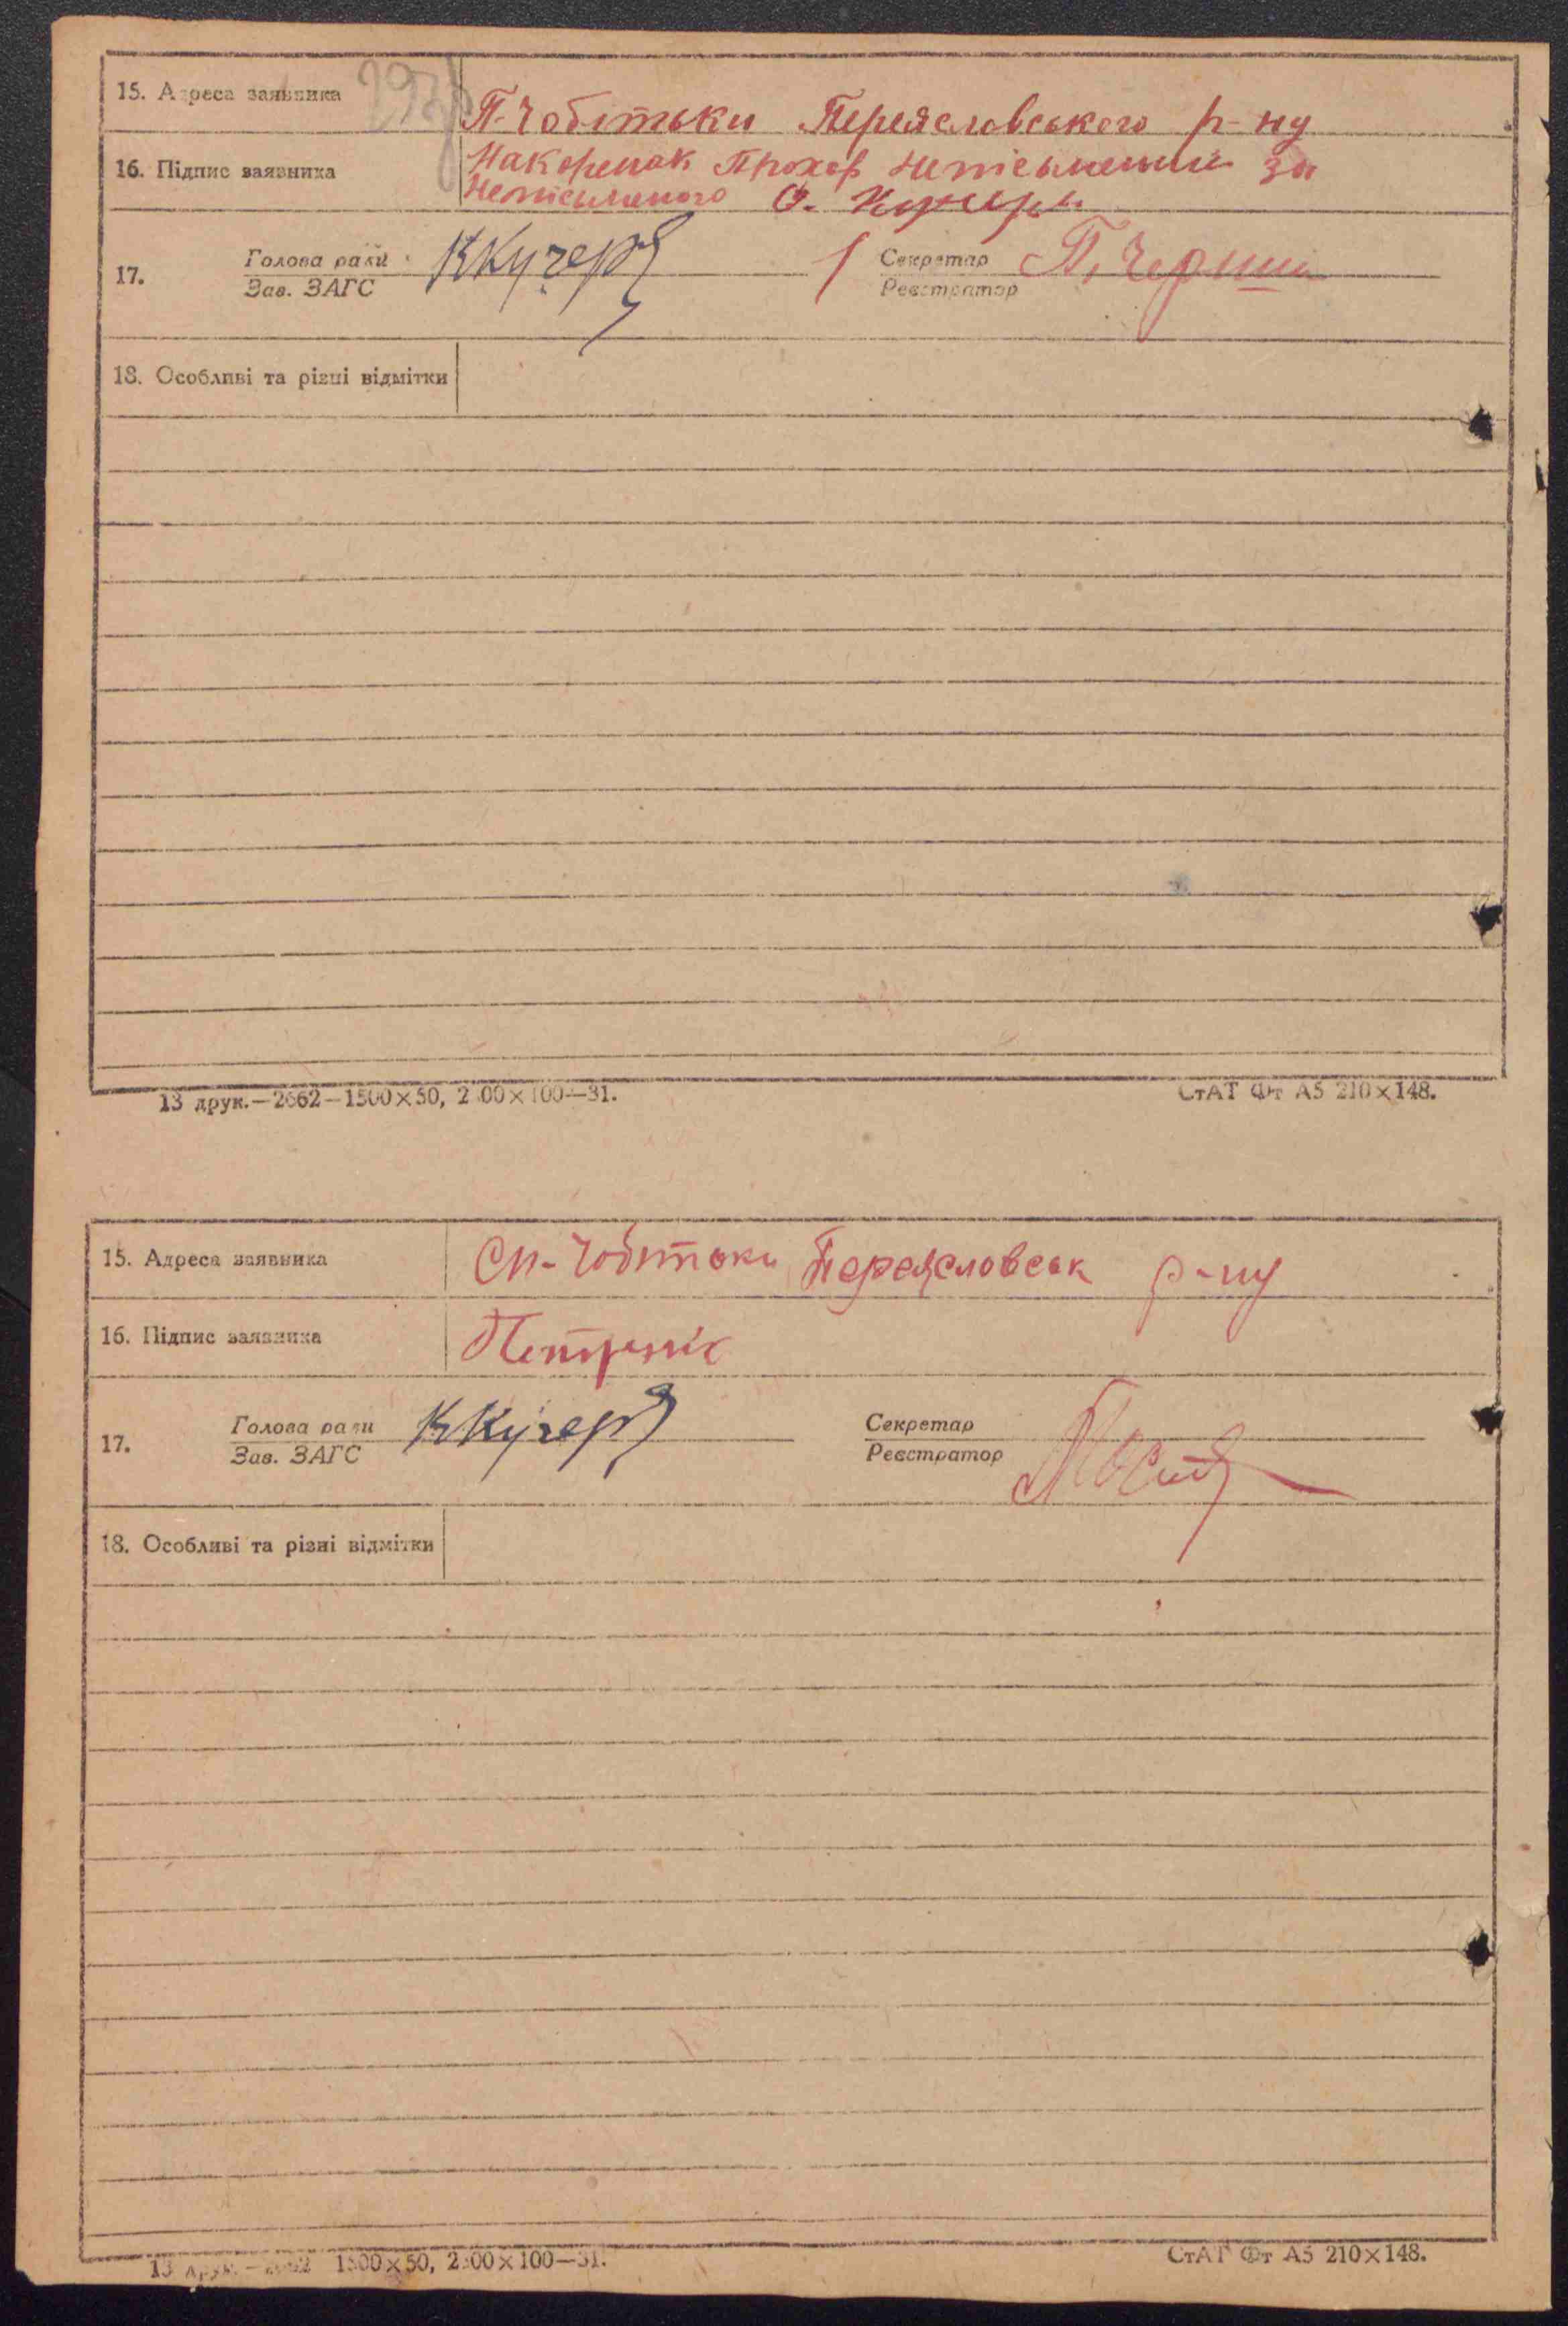 15. Адреса заявника П-Чобітьки Переяславського р-ну
16. Підпис заявника Накоренок Прохор неписьмений за
неписьменого О. Кучеря
17. Голова ради ККучеря Секретар П. Черниш
Зав. ЗАГС Реєстратор
18. Особливі та різні відмітки
13 друк.—2662—1500×50, 2 00×100—31. СтАТ Фт А5 210×148.
15. Адреса заявника Сп-Чобітьки Переясловськ р-ну
16. Підпис заявника
17. Голова ради ККучеря Секретар
Зав. ЗАГС Реєстратор
18. Особливі та різні відмітки
13 друк.— 1500×50, 2 00×100—31. СтАТ Фт А5 210×148.